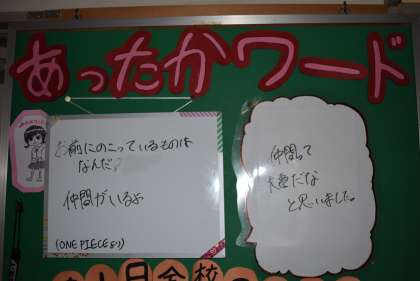 あったかワード
お前にのこっているものは
なんだ?
仲間がいるよ
(ONE PIECEより)
仲間って
大事だな
と思いました。